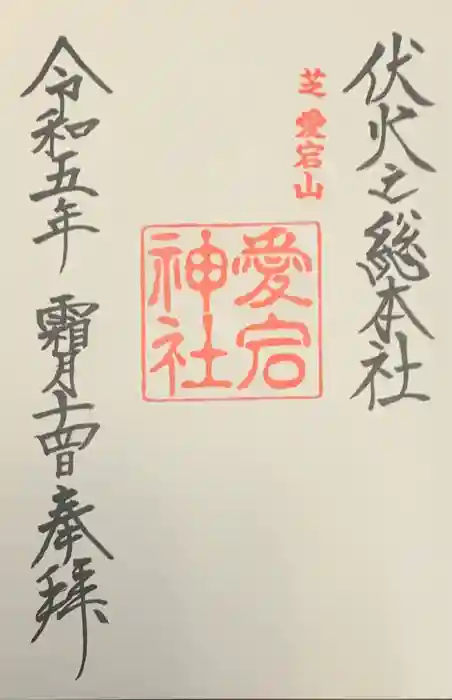 伏火之総本社
芝愛宕山
愛宕
神社
令和五年 霜月十四日 奉拝